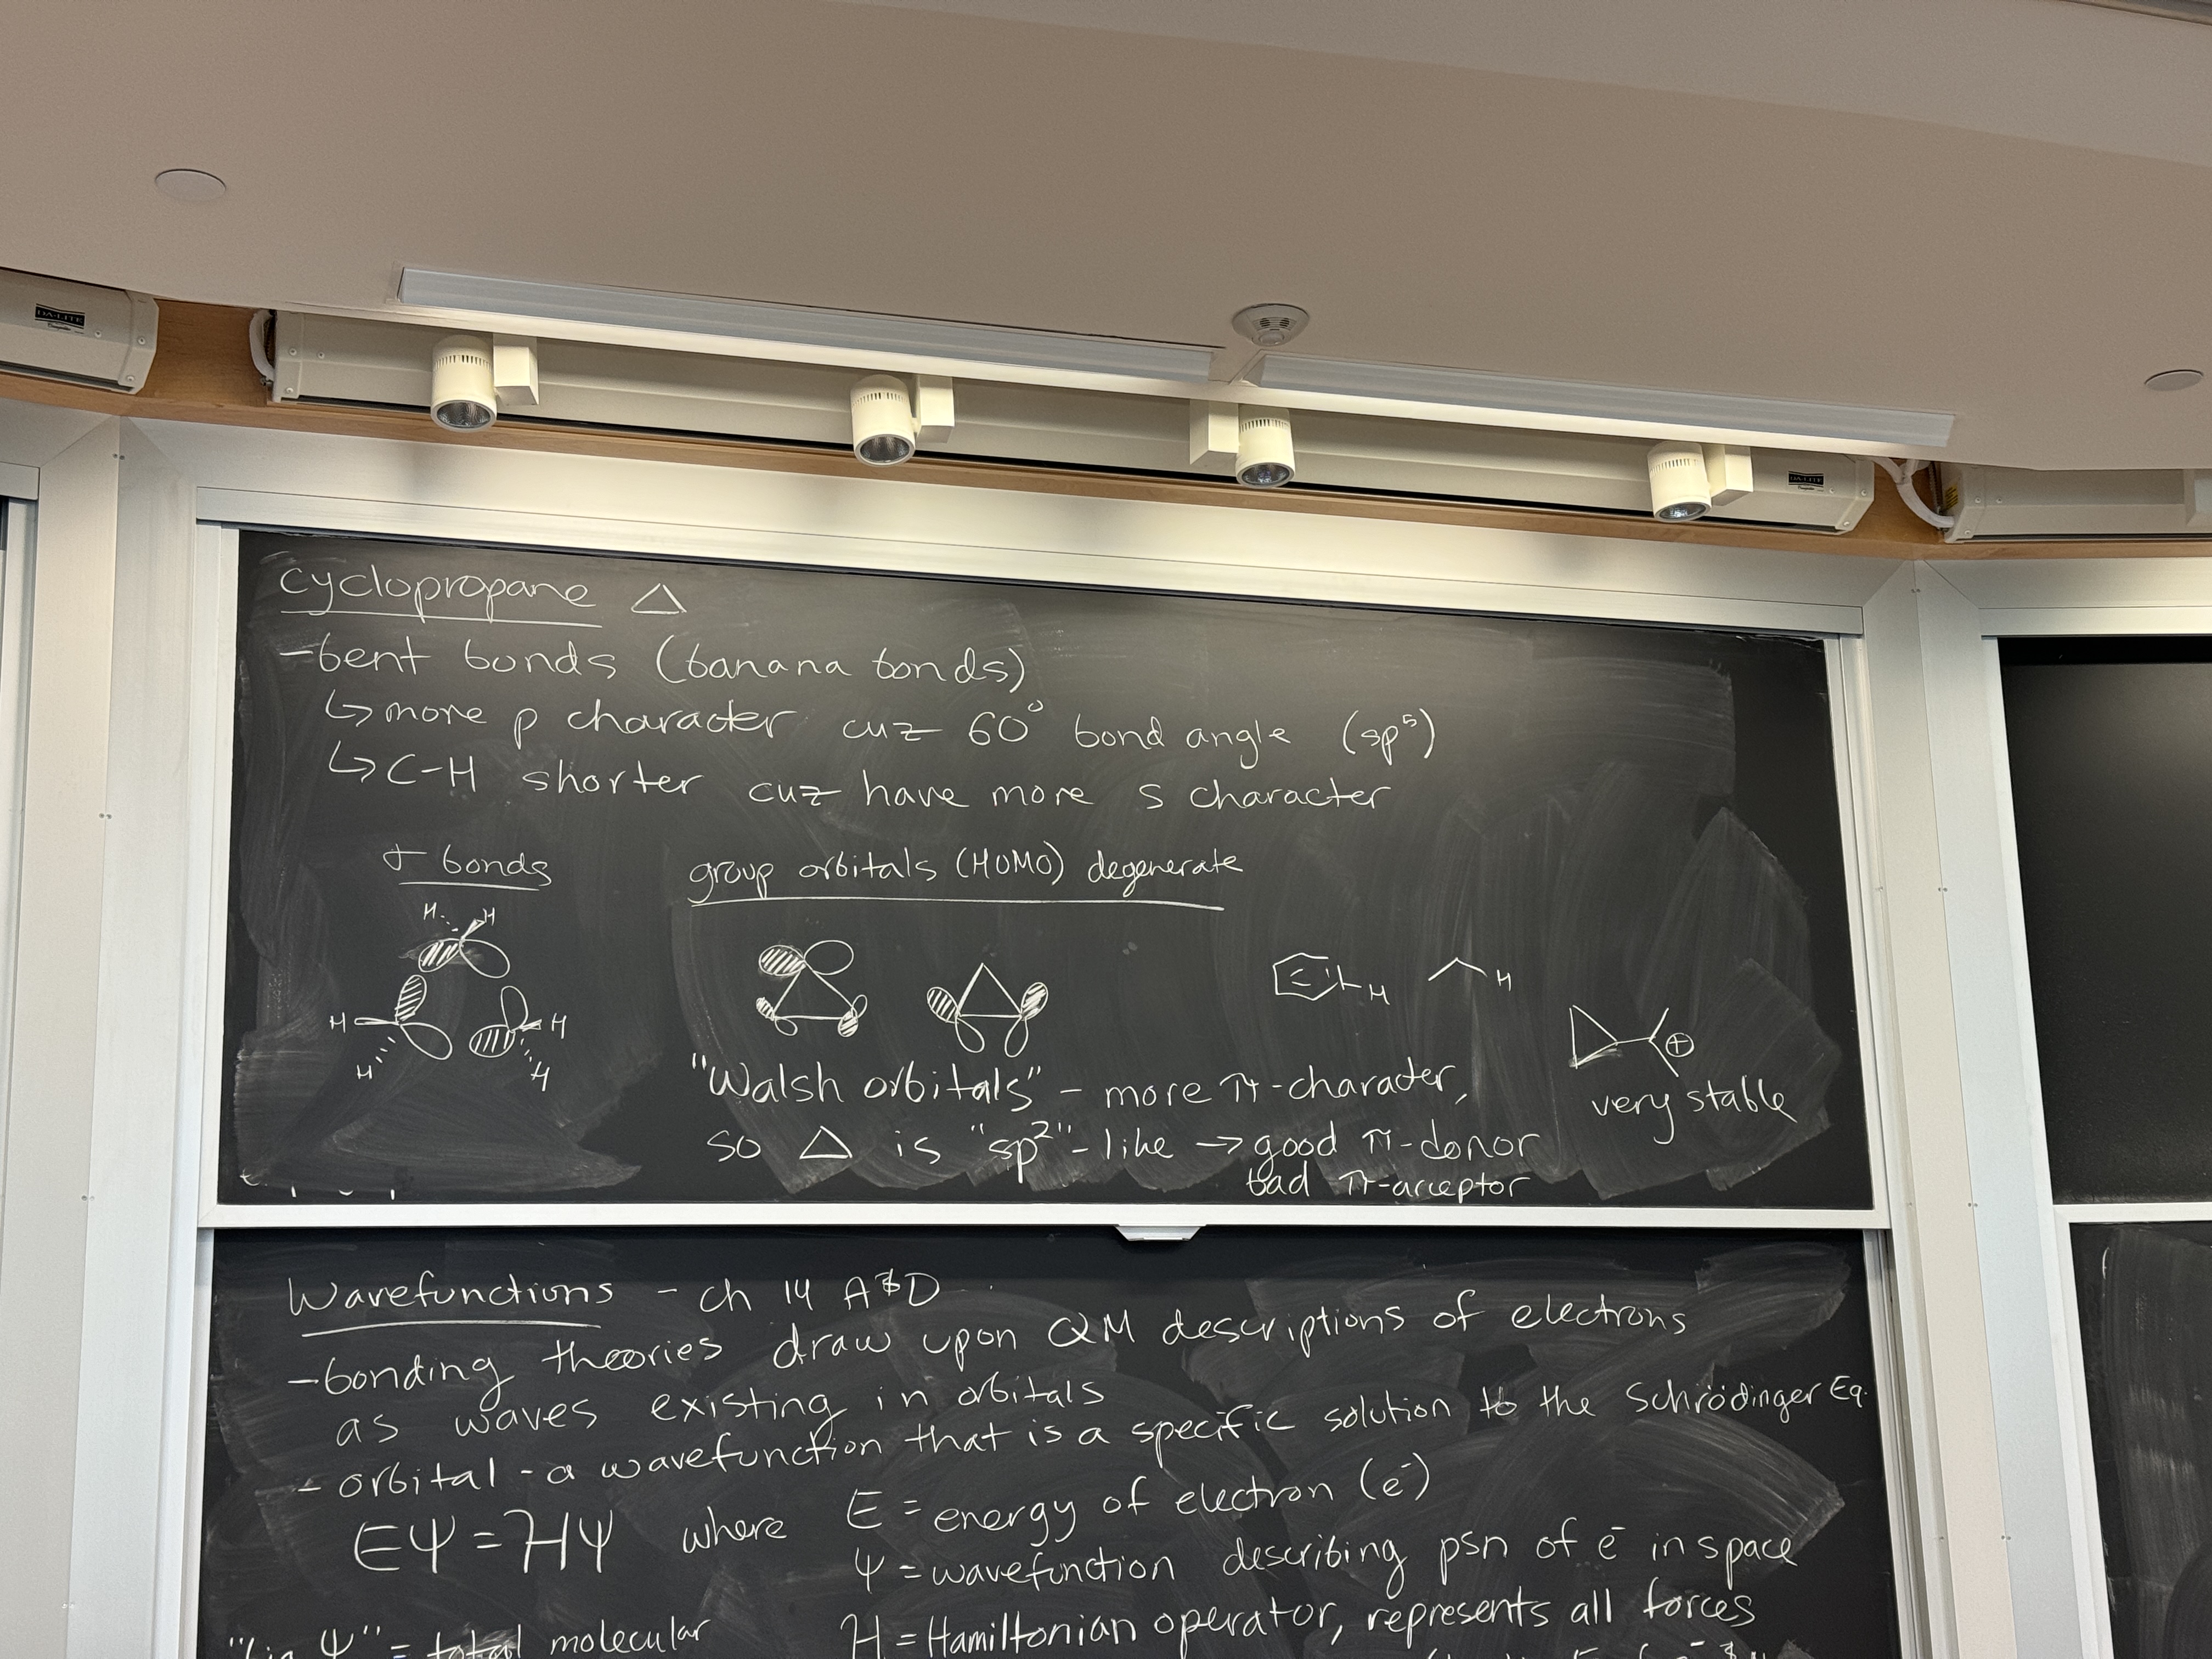 DA-LITE
DA-LITE
cyclopropane △
-bent bonds (banana bonds)
↳ more p character cuz 60° bond angle (sp⁵)
↳ C-H shorter cuz have more s character
σ bonds
group orbitals (HOMO) degenerate
H H
H H
H H
H H
⊕
very stable
"Walsh orbitals" - more π-character,
so △ is "sp²"-like → good π-donor
bad π-acceptor
Wavefunctions - ch 14 A&D
-bonding theories draw upon QM descriptions of electrons
as waves existing in orbitals
- orbital - a wavefunction that is a specific solution to the Schrödinger Eq.
EΨ = HΨ where E = energy of electron (e⁻)
Ψ = wavefunction describing psn of e⁻ in space
H = Hamiltonian operator, represents all forces
Ψ" = total molecular